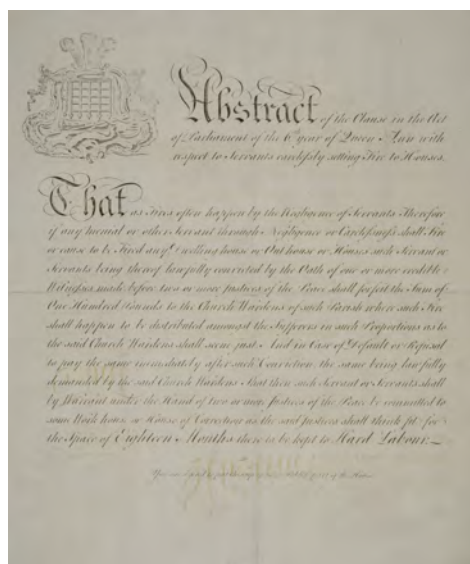 Abstract of the Clause in the Act
of Parliament of the 6th year of Queen Ann with
respect to Servants carelessly setting Fire to Houses.
That as Fires often happen by the Negligence of Servants Therefore
if any menial or other Servant through Negligence or Carelessness shall Fire
or cause to be Fired any Dwelling house or Out house or Houses such Servant or
Servants being thereof lawfully convicted by the Oath of one or more credible
Witnesses made before two or more Justices of the Peace shall forfeit the Sum of
One Hundred Pounds to the Church Wardens of such Parish where such Fire
shall happen to be distributed amongst the Sufferers in such Proportions as to
the said Church Wardens shall seem just And in Case of Default or Refusal
to pay the same immediately after such Conviction the same being lawfully
demanded by the said Church Wardens That then such Servant or Servants shall
by Warrant under the Hand of two or more Justices of the Peace be committed to
some Work house or House of Correction as the said Justices shall think fit for
the Space of Eighteen Months there to be kept to Hard Labour.